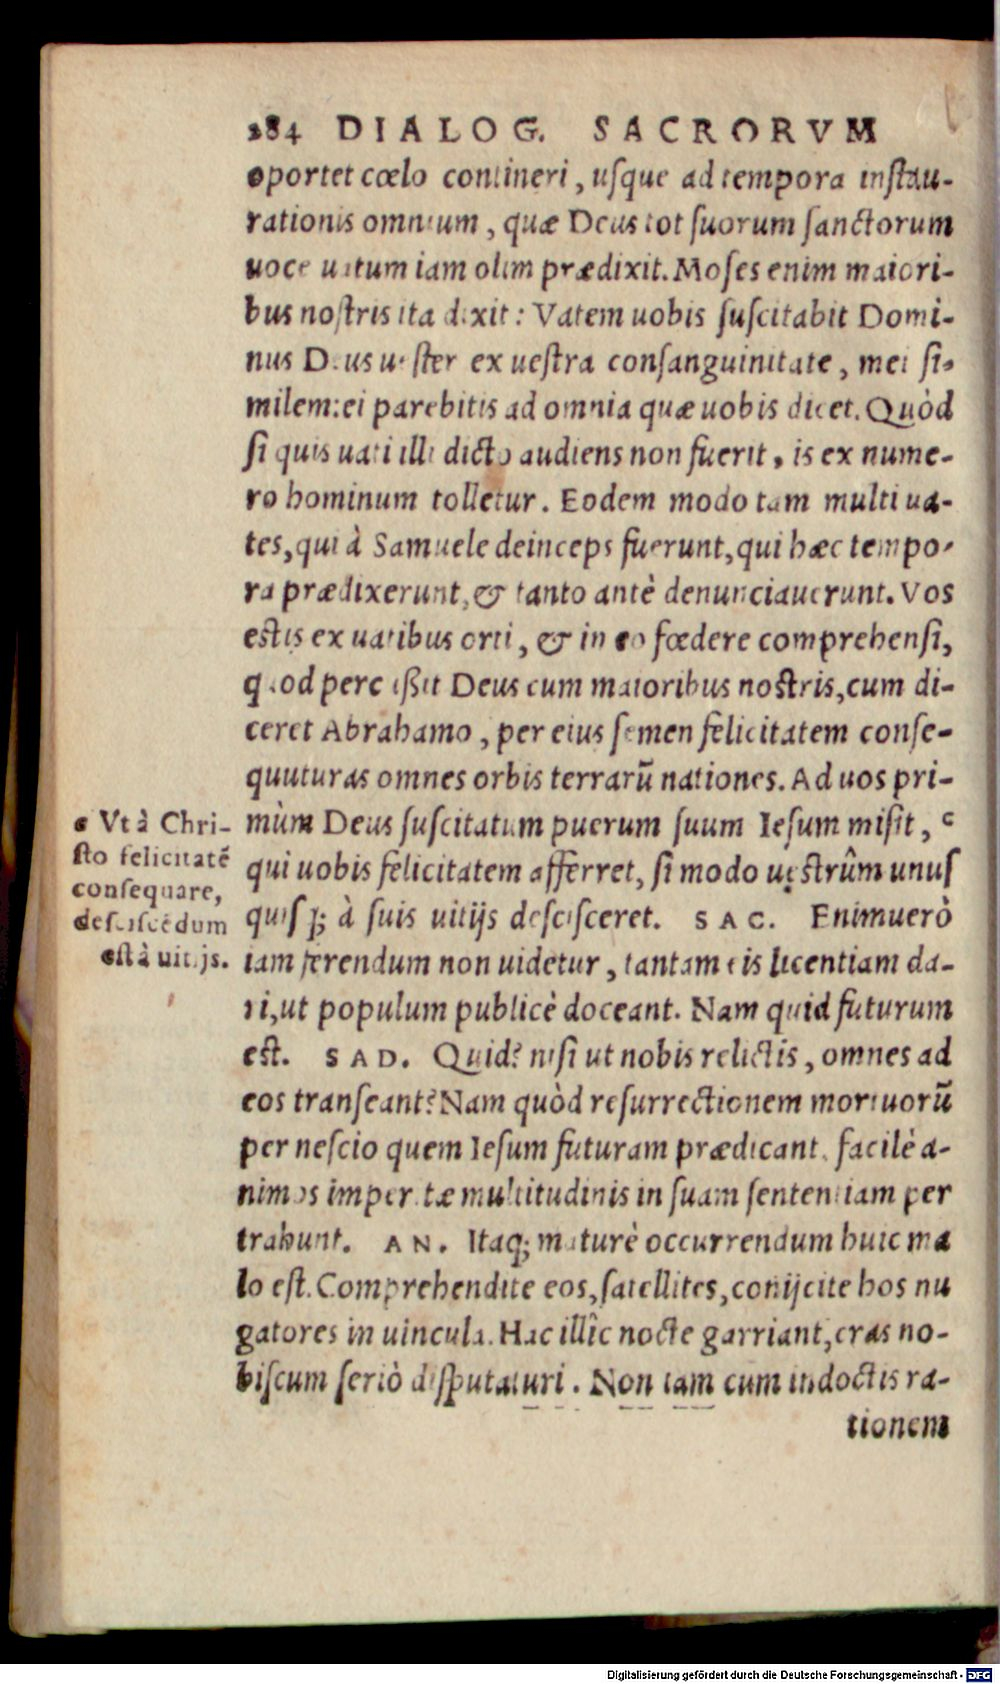 284 DIALOG. SACRORVM
oportet cœlo contineri, uſque ad tempora inſtau-
rationis omnium, quæ Deus tot ſuorum ſanctorum
uoce uatum iam olim prædixit. Moſes enim maiori-
bus noſtris ita dixit: Vatem uobis ſuſcitabit Domi-
nus Deus ueſter ex ueſtra conſanguinitate, mei ſi-
milem: ei parebitis ad omnia quæ uobis dicet. Quòd
ſi quis uati illi dicto audiens non fuerit, is ex nume-
ro hominum tolletur. Eodem modo tam multi ua-
tes, qui à Samuele deinceps fuerunt, qui hæc tempo-
ra prædixerunt, & tanto antè denunciauerunt. Vos
estis ex uatibus orti, & in eo fœdere comprehenſi,
quod percußit Deus cum maioribus nostris, cum di-
ceret Abrahamo, per eius ſemen felicitatem conſe-
quuturas omnes orbis terrarũ nationes. Ad uos pri-
mùm Deus ſuſcitatum puerum ſuum Ieſum miſit, c
qui uobis felicitatem afferret, ſi modo ueſtrûm unuſ
quiſq; à ſuis uitijs deſciſceret. SAC. Enimuerò
iam ferendum non uidetur, tantam eis licentiam da-
ri, ut populum publicè doceant. Nam quid futurum
est. SAD. Quid? niſi ut nobis relictis, omnes ad
eos tranſeant? Nam quòd reſurrectionem mortuorũ
per neſcio quem Ieſum futuram prædicant, facilè a-
nimos imperitæ multitudinis in ſuam ſententiam per
trahunt. AN. Itaq; maturè occurrendum huic ma
lo eſt. Comprehendite eos, ſatellites, conijcite hos nu
gatores in uincula. Hac illîc nocte garriant, cras no-
biſcum ſeriò diſputaturi. Non tam cum indoctis ra-
tionem
c Vt à Chri-
ſto felicitatẽ
conſequare,
deſciſcẽdum
eſt à uitijs.
Digitalisierung gefördert durch die Deutsche Forschungsgemeinschaft - DFG